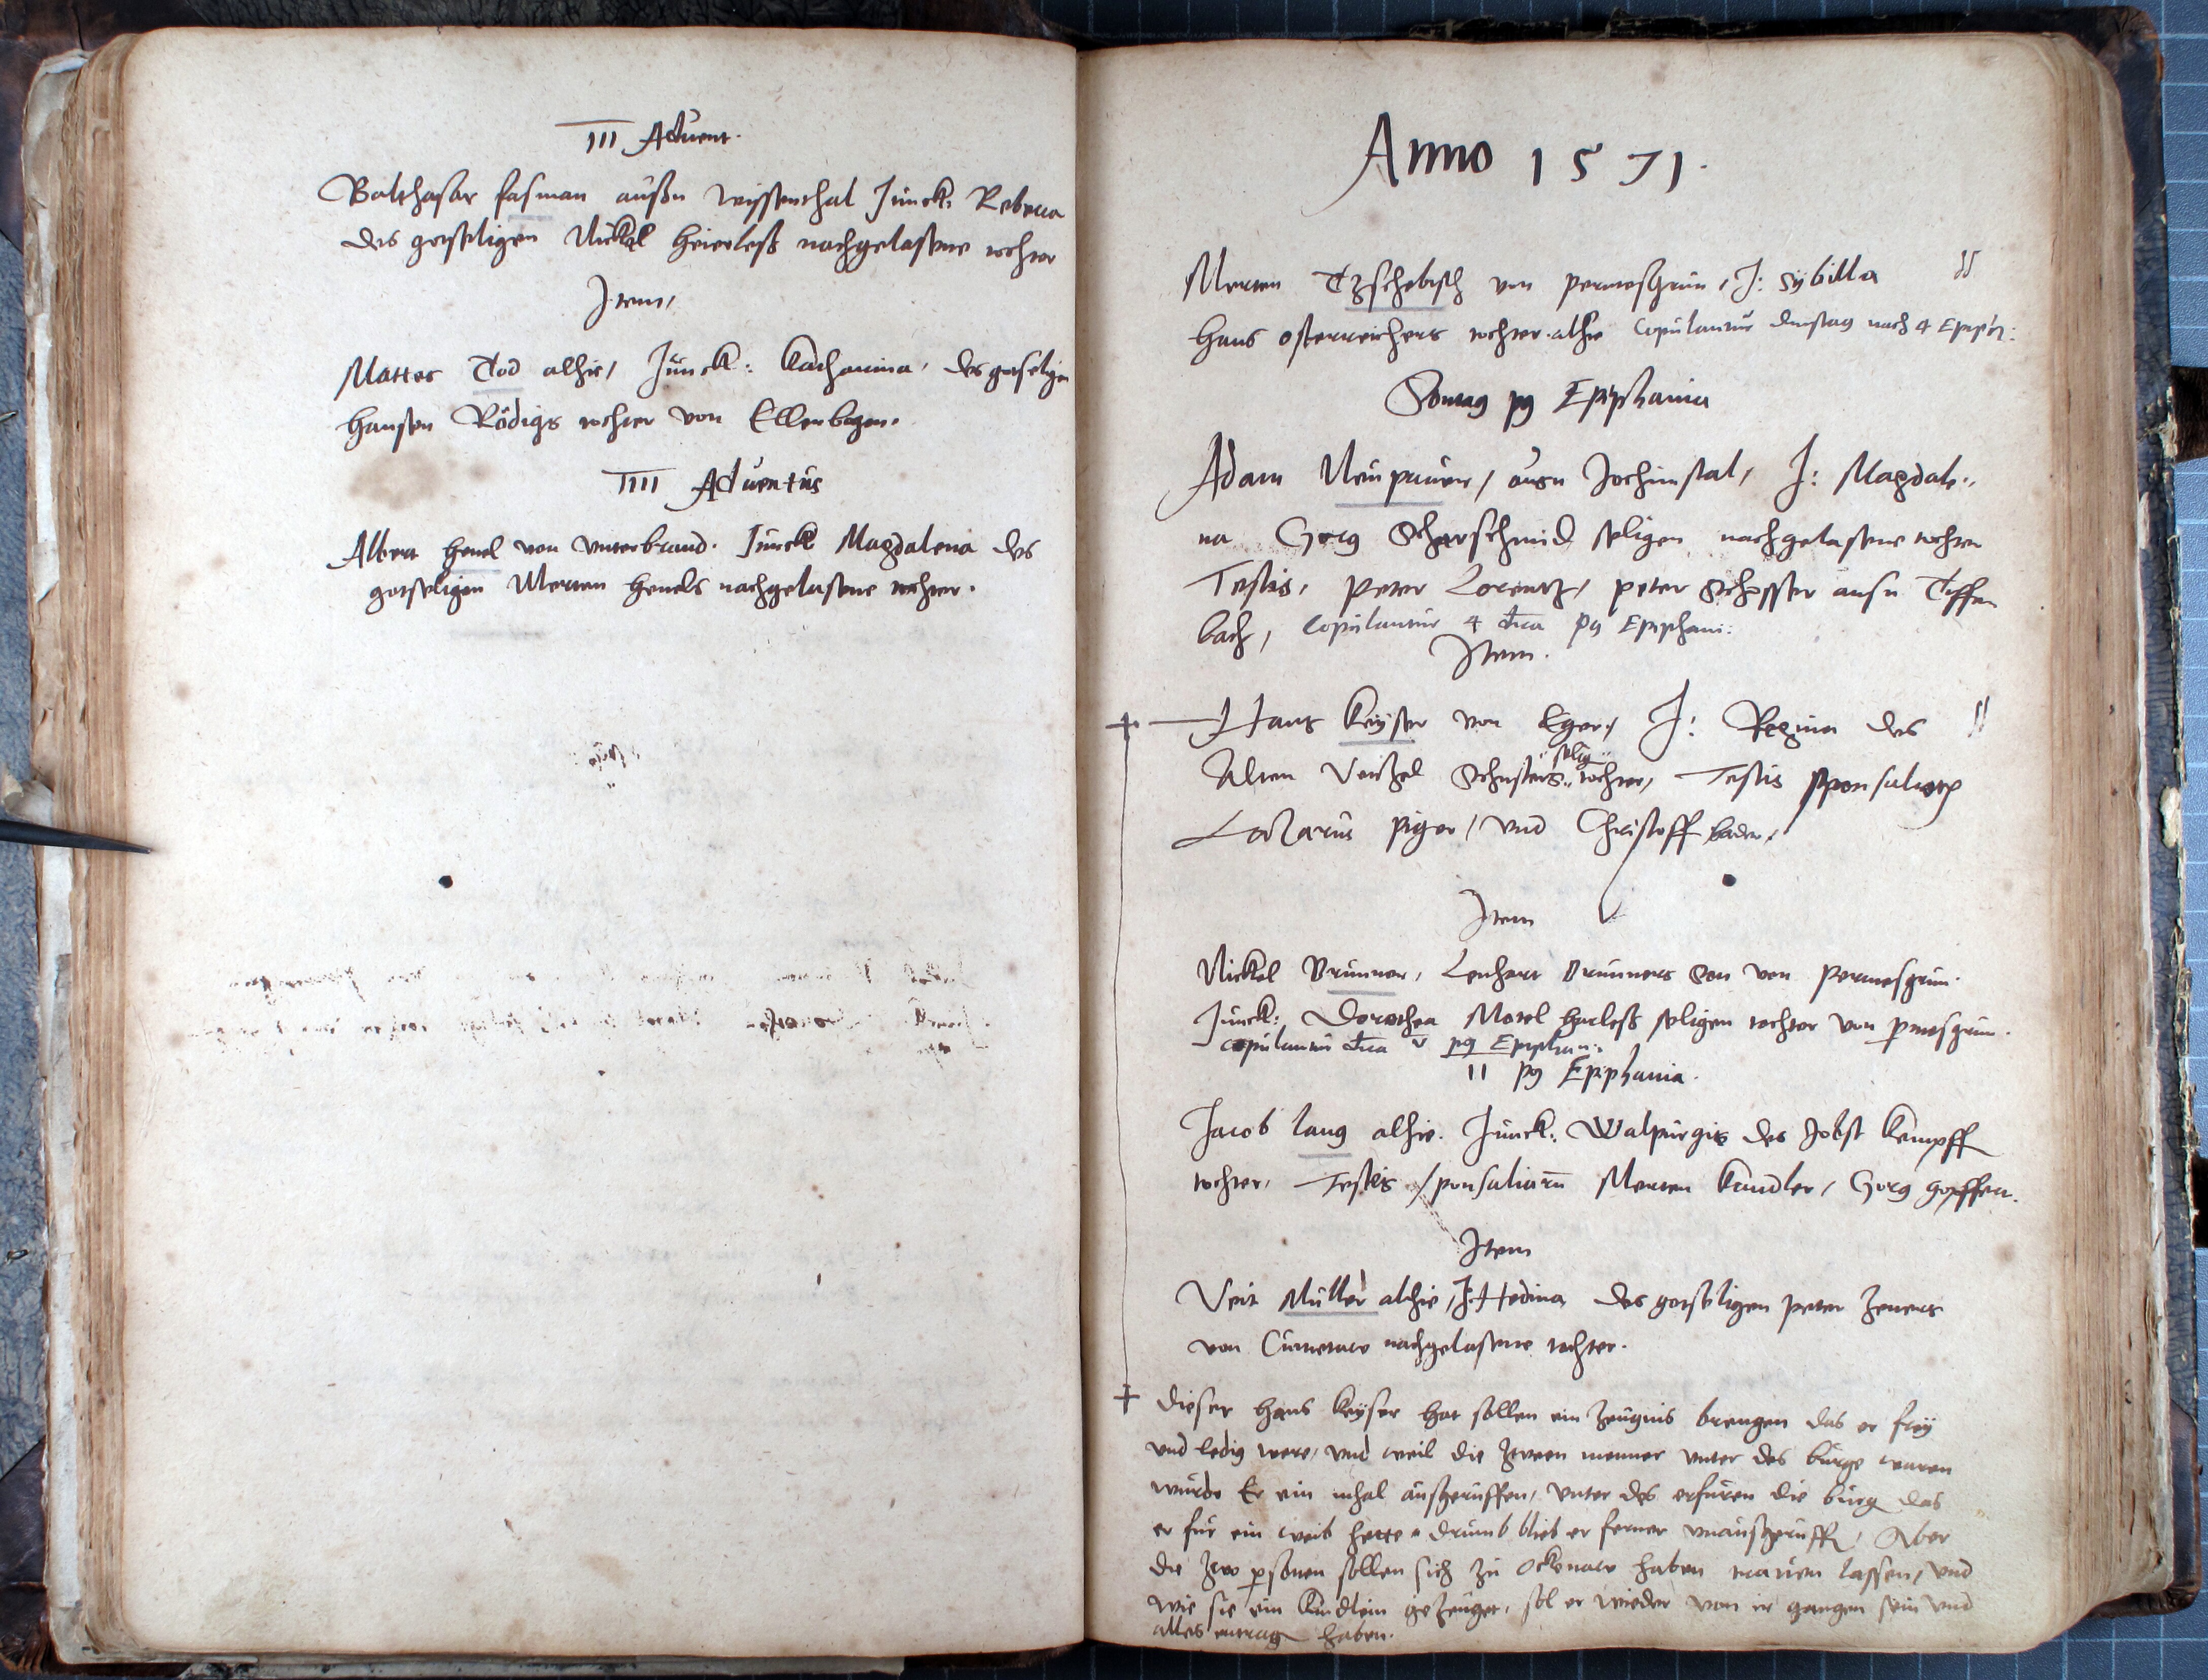 III Advent.
Balthasar fasman außn wissenthal Junck: Rebecca
des gotseligen Nickel heierleß nachgelassene tochter
Item,
Mattes Tod alhie, Junck: Katharina, des gotseligen
hansen Rödigs tochter von Ellenbogen.
IIII Adventus
Albert henel von unterbrand. Junck Magdalena des
gotseligen Merten henels nachgelassene tochter.
Anno 1571.
Merten Tzschebisch von permesgrün, J: Sybilla
hans osterreichers tochter alhie Copulantur dinstag nach 4 Epiph:
Sontag pq Epiphania
Adam Neupauer, ausn Jochimstal, J: Magdale-
na Georg Scharschmid seligen nachgelassene tochter
Testis, Peter Lorentz, peter Schosser ausn Tiffen
bach, Copulantur 4 dnica pq Epiphani:
Item.
Hans keyser von Eger, J: Regina des
selig
Alten Schusters tochter, Testis sponsaliorum
Lazarus piger, und Christoff bader,
Item
Nickel Brunner, Lenhart Brunners Son von permesgrün.
Junck: Dorothea Motel harless seligen tochter von pmesgrün.
copulantur dnica v pq Epiphan:
II pq Epiphania.
Jacob lang alhie. Junck: Walpurgis des Jobst kempff
tochter, Testes sponsaliarum Merten kandler, Georg gopffert.
Item
Veit Müller alhie, J: Hedina des gotseligen peter Zeners
von nachgelassene tochter.
Dieser hans keyser hat sollen ein zeugnis brengen das er frey
und ledig were, und weil die zween menner unter des bürge waren
wurde Er ein mhal außgeruffen, unter des erfuren die bürg das
er fur ein weib hette drumb blieb er ferner unaußgeruff, Aber
die zwo psonen sollen sich zu Ockenaw haben trauen lassen, und
wie sie ein kindlein gezeuget, sol er wieder von ir gangen sein und
alles entrag haben.